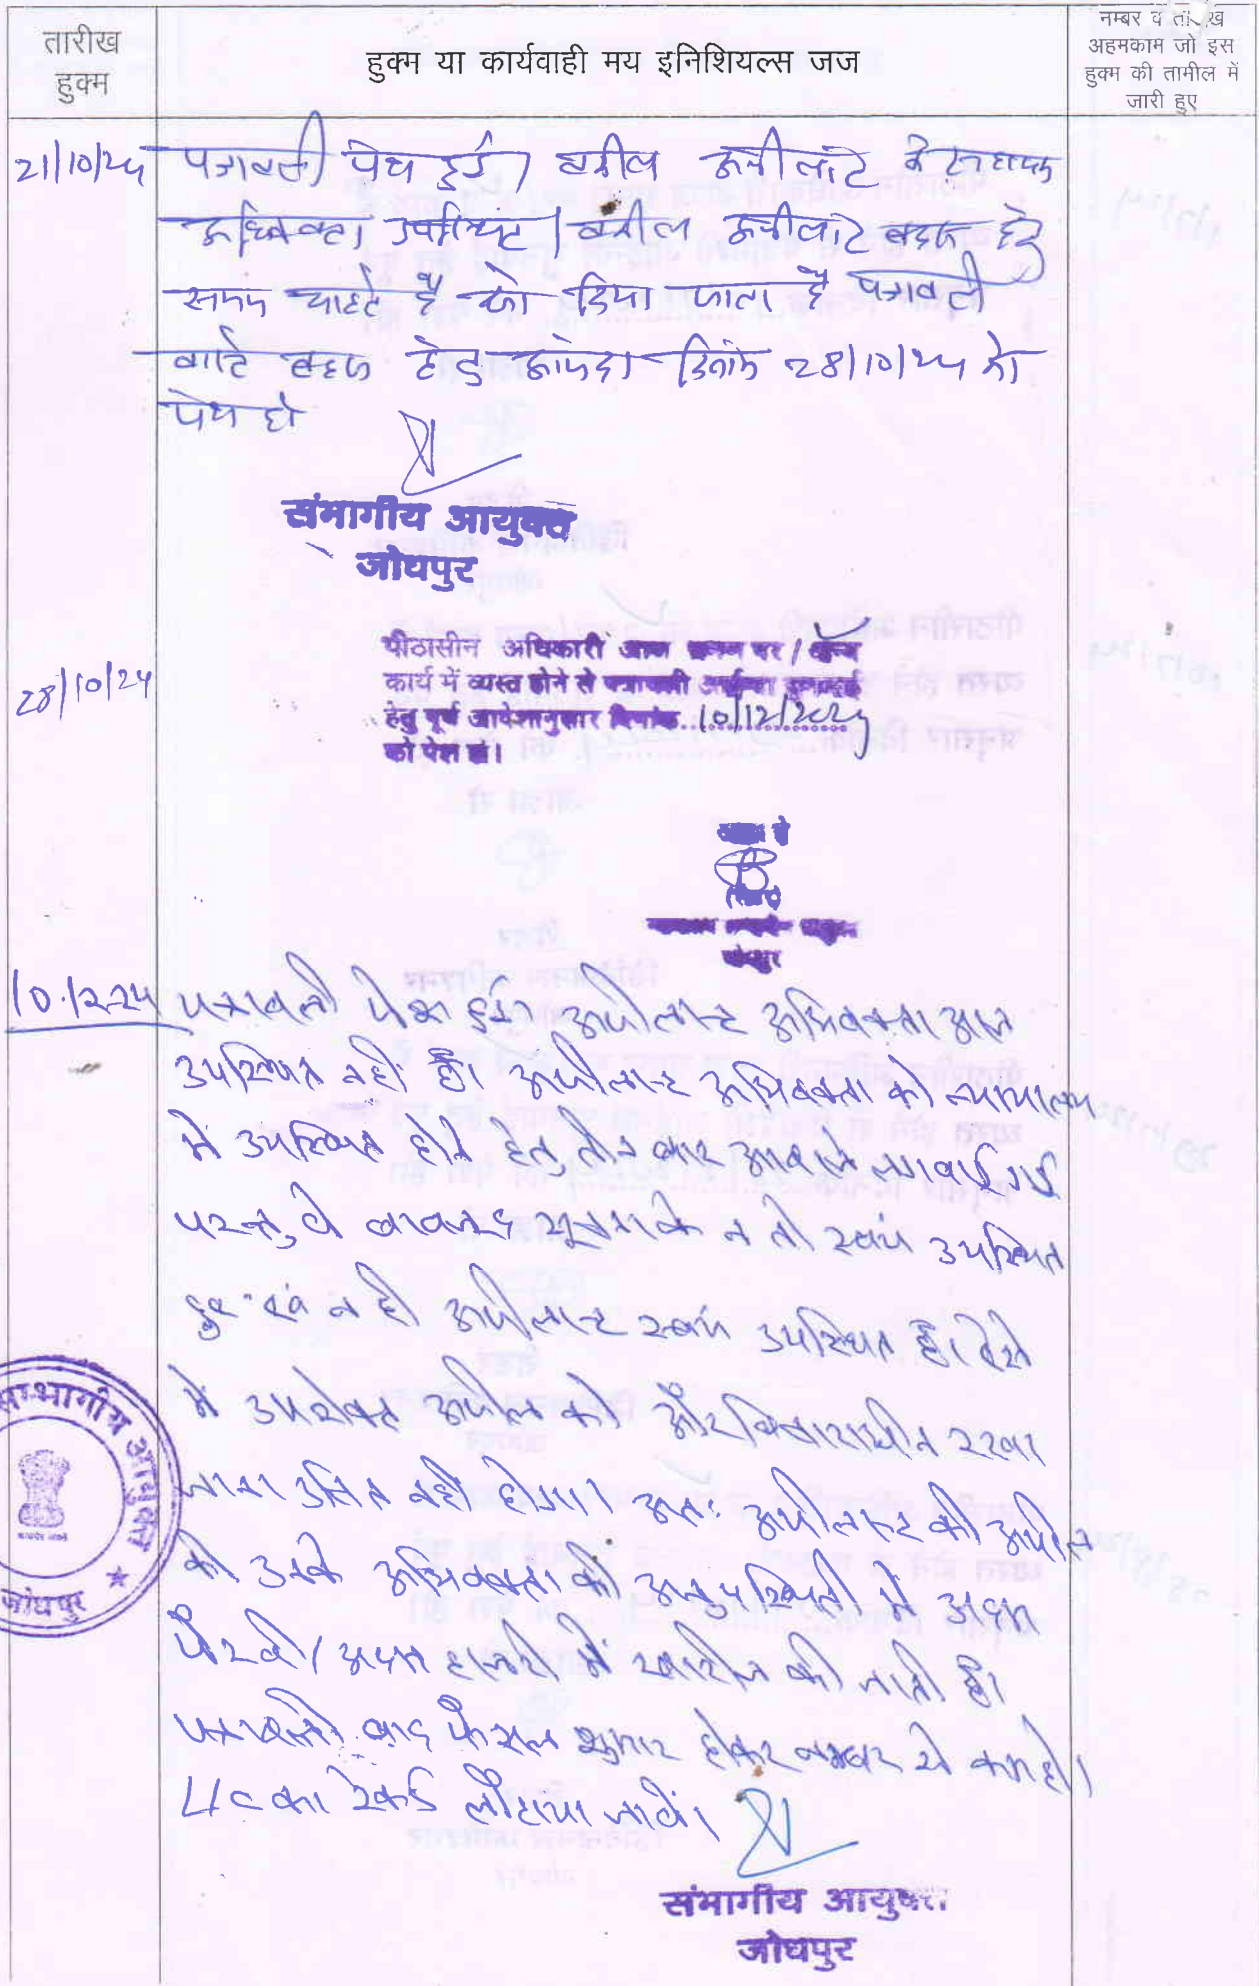 तारीख
हुक्म
हुक्म या कार्यवाही मय इनिशियल्स जज
नम्बर व तारीख
अहमकाम जो इस
हुक्म की तामील में
जारी हुए
21/10/24 पत्रावली पेश हुई। वकील अपीलांट के सहायक
अधिवक्ता उपस्थित। वकील अपीलांट बहस हेतु
समय चाहते है जो दिया जाता है पत्रावली
वास्ते बहस हेतु आईन्दा दिनांक 28/10/24 को
पेश हो
संभागीय आयुक्त
जोधपुर
28/10/24
पीठासीन अधिकारी आज भ्रमण पर / अन्य
कार्य में व्यस्त होने से पत्रावली आईन्दा सुनवाई
हेतु पूर्व आदेशानुसार दिनांक 10/12/2024
को पेश हो।
आज्ञा से
जोधपुर
10.12.24 पत्रावली पेश हुई। अपीलान्ट अभिवक्ता आज
उपस्थित नहीं है। अपीलान्ट अभिवक्ता को न्यायालय
में उपस्थित होने हेतु तीन बार आवाजे लगवाई गई
परन्तु वे बावजूद सूचना के न तो स्वयं उपस्थित
हुए एवं न ही अपीलान्ट स्वयं उपस्थित है। ऐसे
में उपरोक्त अपील को और विचाराधीन रखा
जाना उचित नहीं होगा। अतः अपीलान्ट की अपील
को उनके अभिवक्ता की अनुपस्थिती में अदम
पैरवी/अदम हाजरी में खारीज की जाती है।
पत्रावली बाद फैसल शुमार होकर नम्बर से कम हो।
L/C का रेकर्ड लौटाया जावें।
संभागीय आयुक्त
जोधपुर
सम्भागीय आयुक्त
जोधपुर